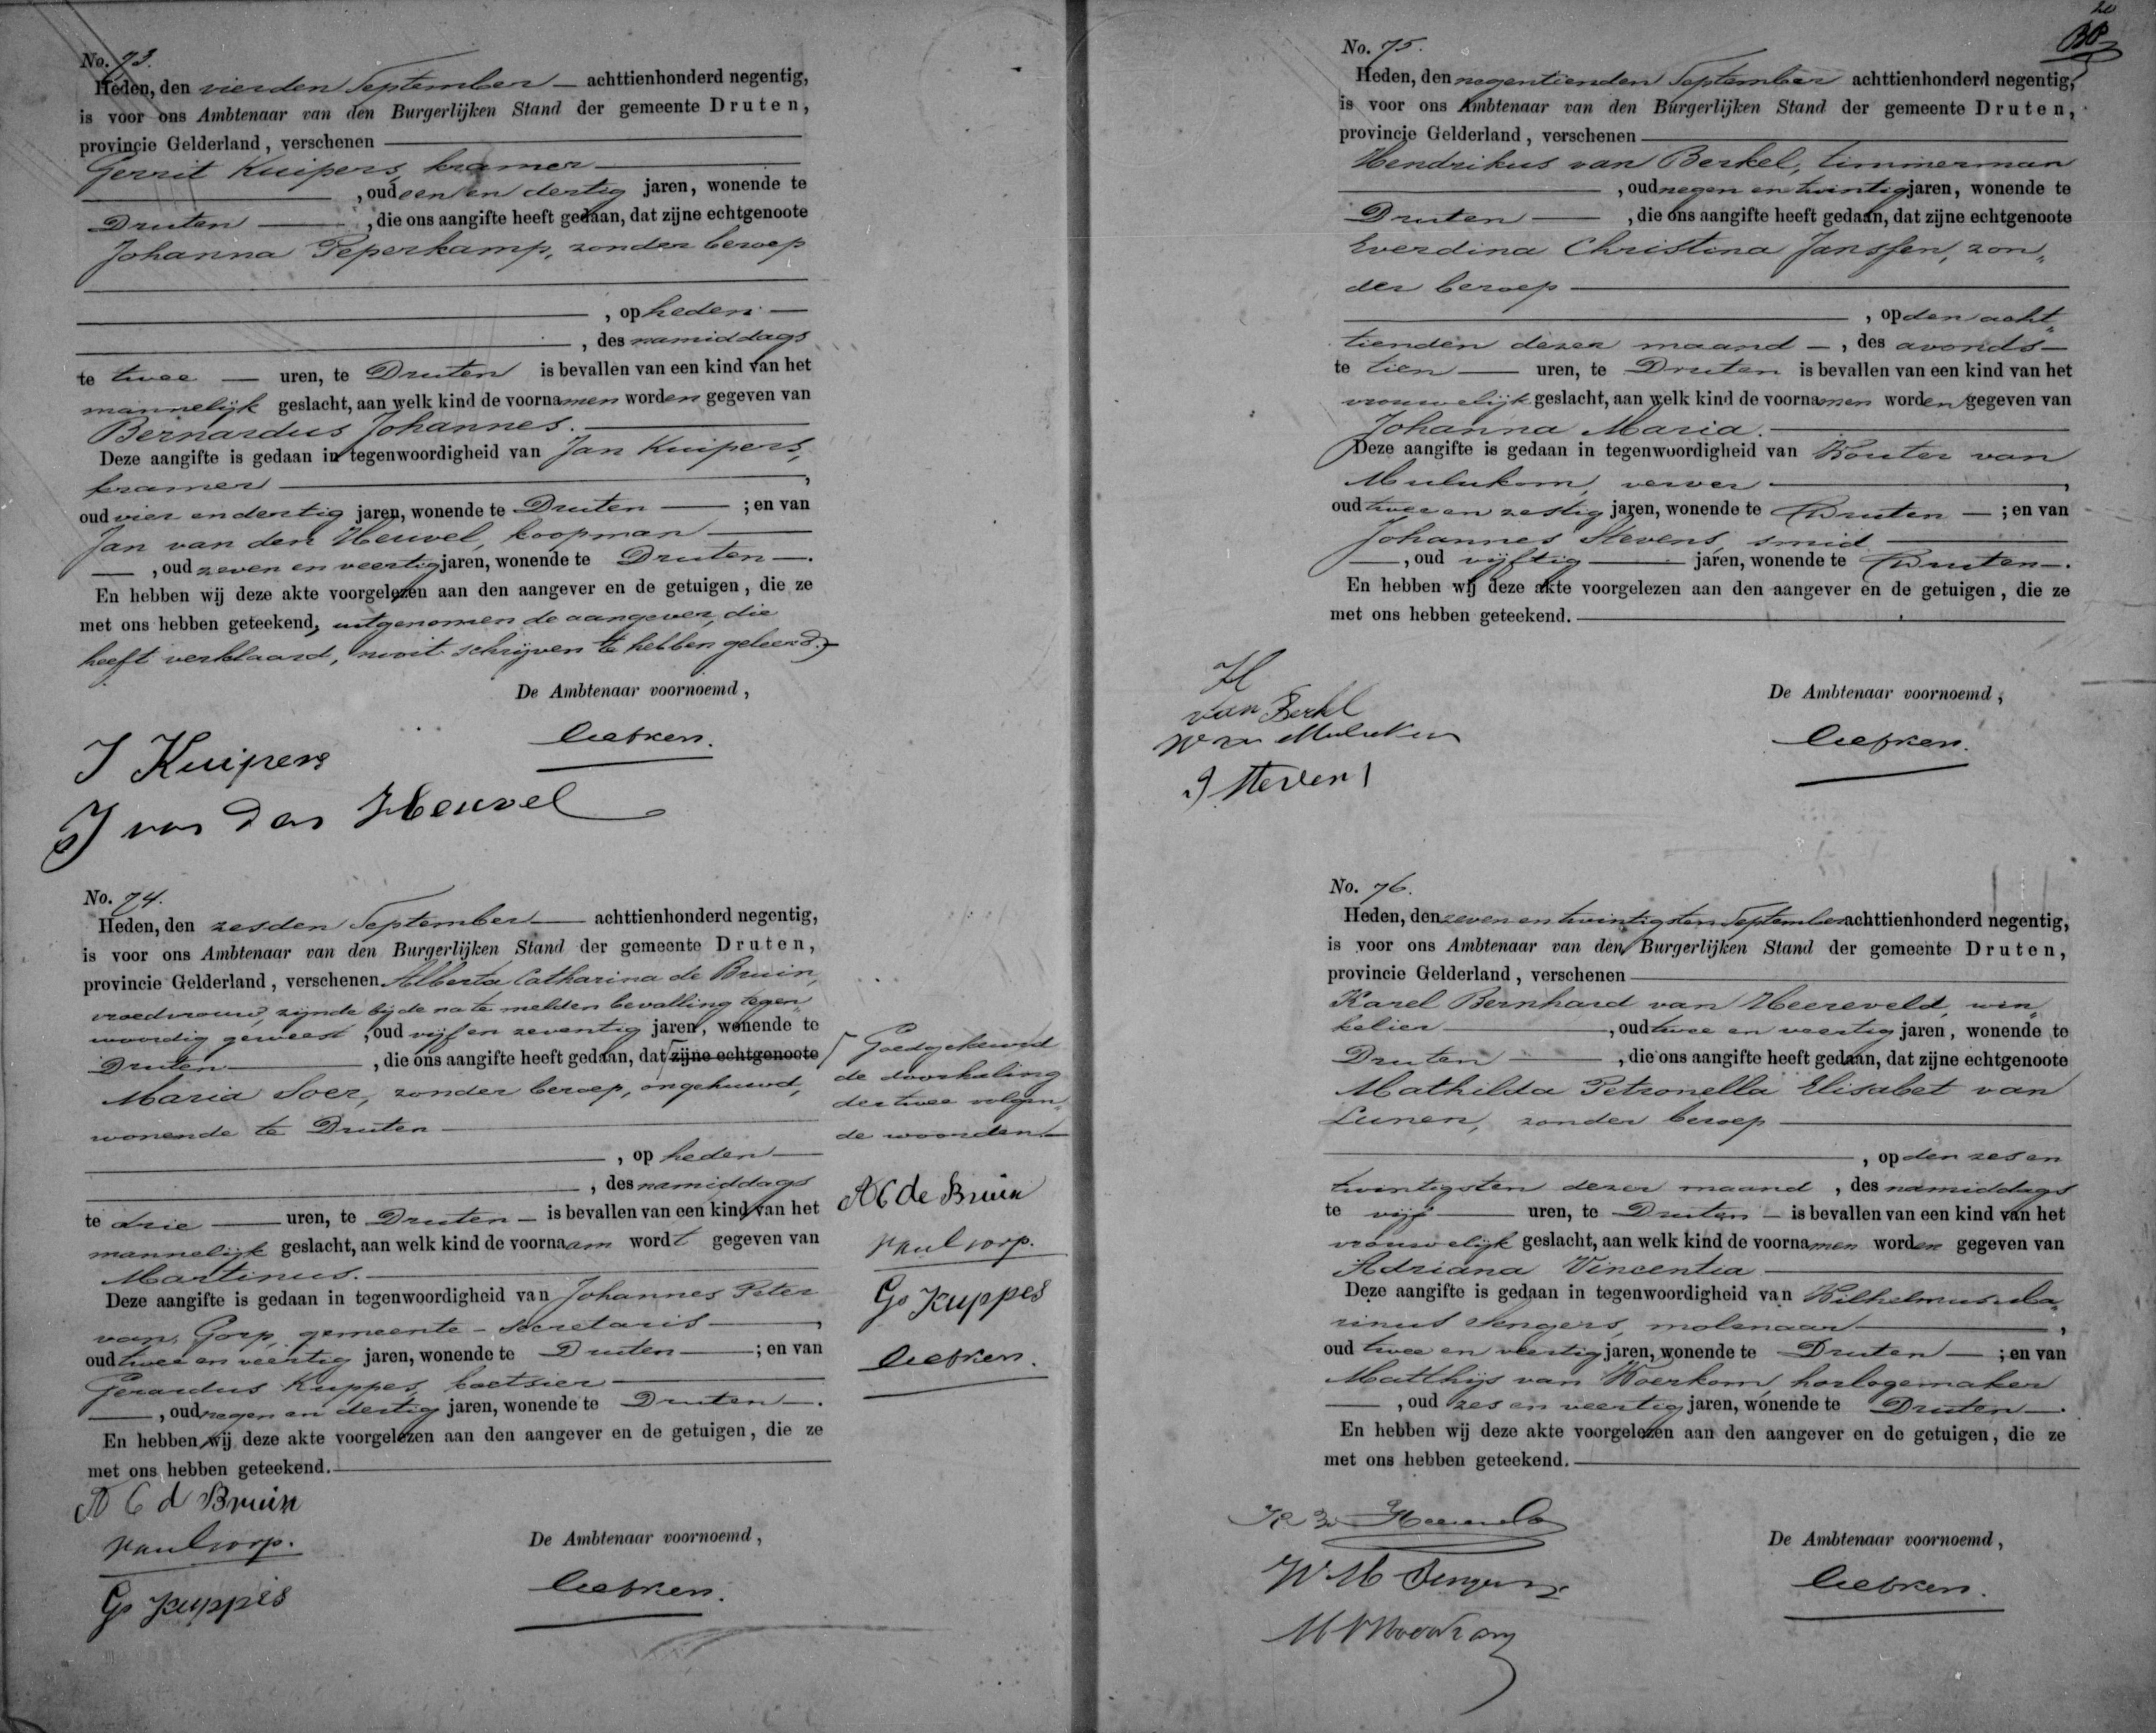 No. 73.
Heden, den vierden September — achttienhonderd negentig,
is voor ons Ambtenaar van den Burgerlijken Stand der gemeente Druten,
provincie Gelderland, verschenen
Gerrit Kuipers, kramer
, oud een en dertig jaren, wonende te
Druten — , die ons aangifte heeft gedaan, dat zijne echtgenoote
Johanna Peperkamp, zonder beroep
, op heden —
, des namiddags
te twee — uren, te Druten is bevallen van een kind van het
mannelijk geslacht, aan welk kind de voornamen worden gegeven van
Bernardus Johannes.
Deze aangifte is gedaan in tegenwoordigheid van Jan Kuipers,
kramer — ,
oud vier en dertig jaren, wonende te Druten — ; en van
Jan van den Heuvel, koopman
— , oud zeven en veertig jaren, wonende te Druten — .
En hebben wij deze akte voorgelezen aan den aangever en de getuigen, die ze
met ons hebben geteekend, uitgenomen de aangever, die
heeft verklaard, nooit schrijven te hebben geleerd.
De Ambtenaar voornoemd,
J Kuipers
J van den Heuvel
No. 74.
Heden, den zesden September — achttienhonderd negentig,
is voor ons Ambtenaar van den Burgerlijken Stand der gemeente Druten,
provincie Gelderland, verschenen Alberta Catharina de Bruin,
vroedvrouw, zijnde bij de na te melden bevalling tegen„
woordig geweest , oud vijf en zeventig jaren, wonende te
Druten — , die ons aangifte heeft gedaan, dat zijne echtgenoote
Maria Soer, zonder beroep, ongehuwd,
wonende te Druten
, op heden —
, des namiddags
te drie — uren, te Druten — is bevallen van een kind van het
mannelijk geslacht, aan welk kind de voornaam wordt gegeven van
Martinus.
Deze aangifte is gedaan in tegenwoordigheid van Johannes Peter
van Gorp, gemeente-secretaris — ,
oud twee en veertig jaren, wonende te Druten — ; en van
Gerardus Kuppes, koetsier
— , oud negen en dertig jaren, wonende te Druten — .
En hebben wij deze akte voorgelezen aan den aangever en de getuigen, die ze
met ons hebben geteekend.
A C d Bruin
van Gorp.
Gs Kuppes
De Ambtenaar voornoemd,
Goedgekeurd
de doorhaling
der twee volgen„
de woorden
A C de Bruin
van Gorp.
Gs Kuppes
No. 75.
Heden, den negentienden September achttienhonderd negentig,
is voor ons Ambtenaar van den Burgerlijken Stand der gemeente Druten,
provincie Gelderland, verschenen
Hendrikus van Berkel, timmerman
, oud negen en twintig jaren, wonende te
Druten — , die ons aangifte heeft gedaan, dat zijne echtgenoote
Everdina Christina Janssen, zon„
der beroep
, op den acht„
tienden dezer maand — , des avonds —
te tien — uren, te Druten is bevallen van een kind van het
vrouwelijk geslacht, aan welk kind de voornamen worden gegeven van
Johanna Maria.
Deze aangifte is gedaan in tegenwoordigheid van Wouter van
Mulukom, verver — ,
oud twee en zestig jaren, wonende te Druten — ; en van
Johannes Stevens, smid
— , oud vijftig — jaren, wonende te Druten — .
En hebben wij deze akte voorgelezen aan den aangever en de getuigen, die ze
met ons hebben geteekend.
H
van Berkl
J Stevens
De Ambtenaar voornoemd,
No. 76.
Heden, den zeven en twintigsten September achttienhonderd negentig,
is voor ons Ambtenaar van den Burgerlijken Stand der gemeente Druten,
provincie Gelderland, verschenen
Karel Bernhard van Heereveld, win„
kelier — , oud twee en veertig jaren, wonende te
Druten — , die ons aangifte heeft gedaan, dat zijne echtgenoote
Mathilda Petronella Elisabet van
Lunen, zonder beroep
, op den zes en
twintigsten dezer maand , des namiddags
te vijf — uren, te Druten — is bevallen van een kind van het
vrouwelijk geslacht, aan welk kind de voornamen worden gegeven van
Adriana Vincentia
Deze aangifte is gedaan in tegenwoordigheid van Wilhelmus Ma„
rinus Sengers, molenaar — ,
oud twee en veertig jaren, wonende te Druten — ; en van
Matthijs van Woerkom, horlogemaker
— , oud zes en veertig jaren, wonende te Druten — .
En hebben wij deze akte voorgelezen aan den aangever en de getuigen, die ze
met ons hebben geteekend.
W M Sengers
De Ambtenaar voornoemd,